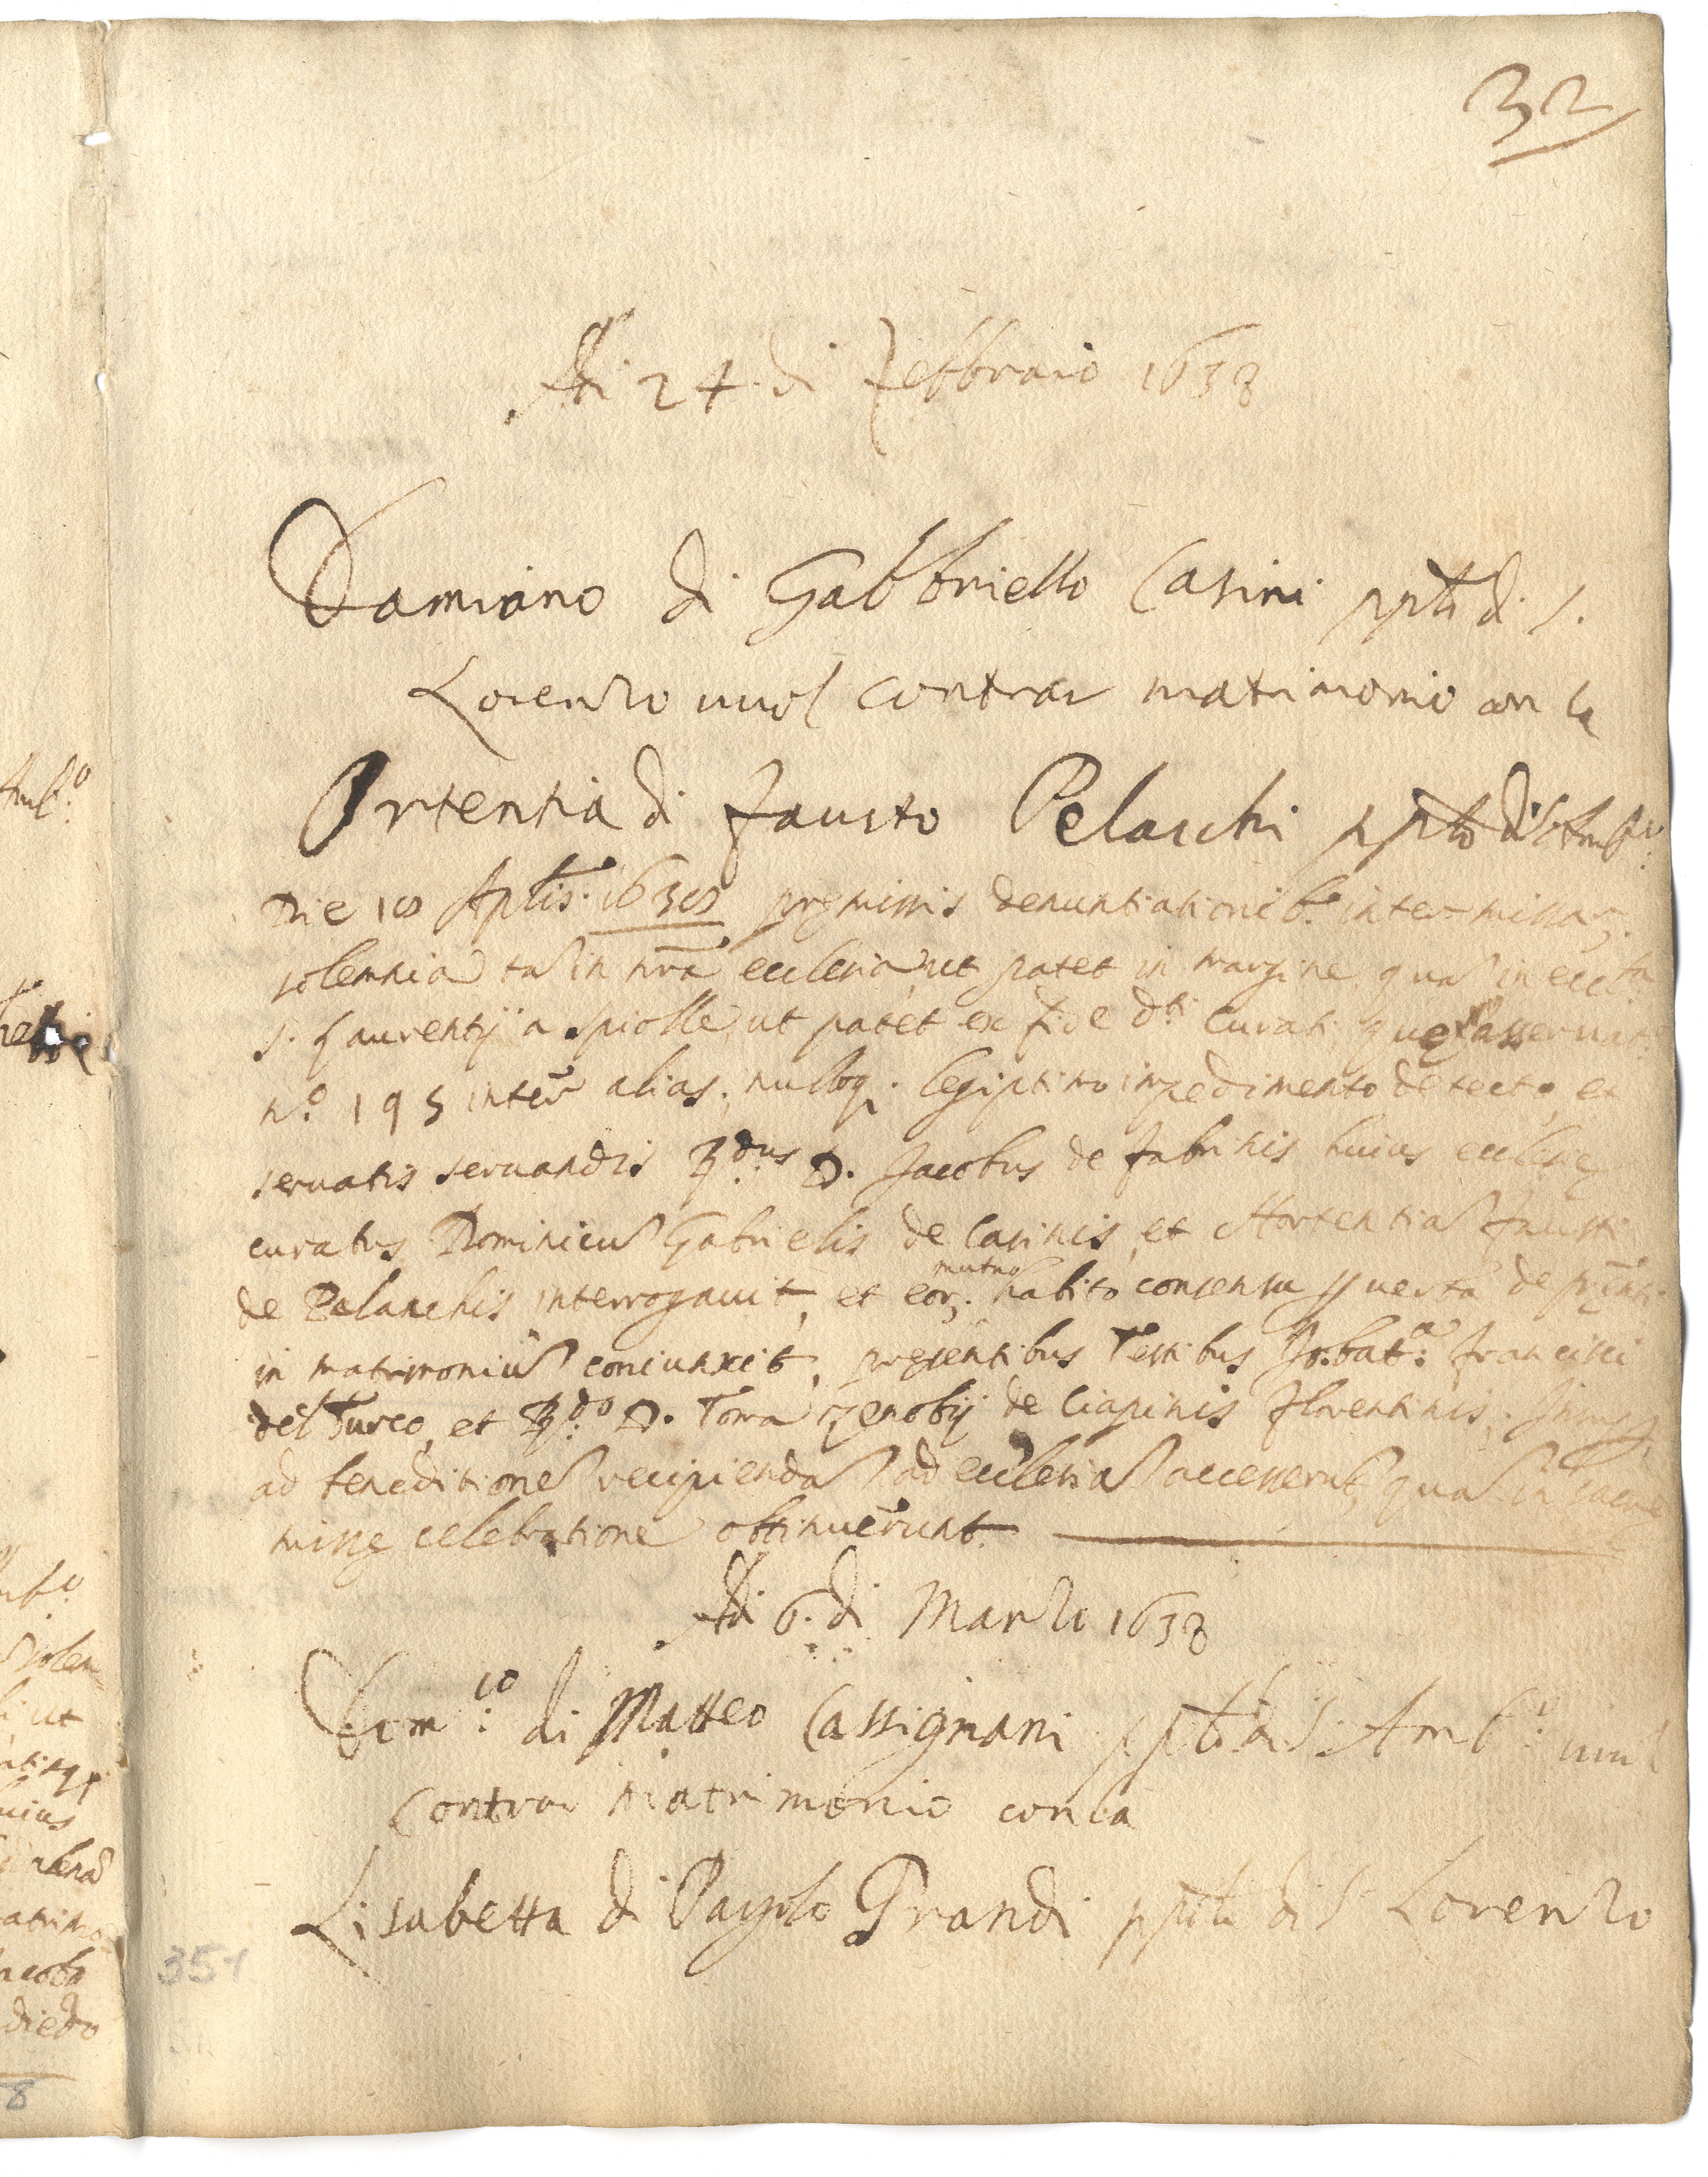 32
Adi 24. di Febbraio 1638
Damiano di Gabbriello Casini ppto di S.
Lorenzo vuol contrar matrimonio con la
Ortentia di Fausto Pelaschi ppto di S. Amb.o
Die 18 Aplis. 1638 premissis denuntiationib. inter missar.
solemnia ta in nra ecclesia, ut patet in margine qua in eccl.a
S. Laurentij a Spiolle, ut patet ex fide d.ti Curati, que asservat.
n.o 195 inter alias; nulloq. legiptimo impedimento detecto, et
servatis servandis R.dus D. Jacobus de Fabrinis huius ecclesie
curatus Dominicu Gabrielis de Casinis, et Hortentia Fausti
de Pelaschis interrogavit, et eor. mutuo habito consensu p verba de prnti
in matrimoniu coniunxit, presentibus Testibus Jo: bat.a Francisci
del Turco, et R.do D. Toma Zenobij de Ciapinis Florentinis,
ad beneditione recipienda ad ecclesia accesserut, qua in sacre
misse celebratione obtinuerunt.
Adi 6. di Marzo 1638
Dom.co di Matteo Cassignani ppto di S. Amb.o vuol
Contrar Matrimonio con la
Lisabetta di Pagolo Grandi ppto di S. Lorenzo
351